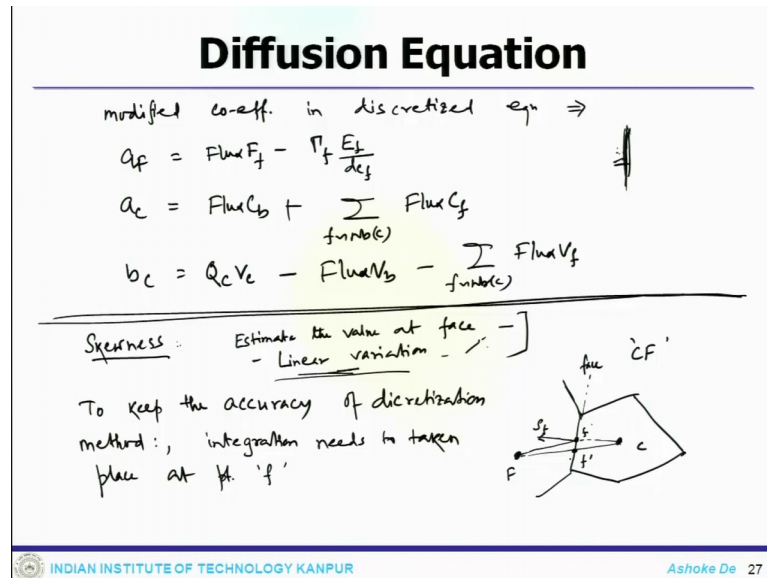 Diffusion Equation
modified co-eff. in discretized eqn ⇒
a_F = Flux F_f - Γ_f E_f / d_Cf
a_C = Flux C_b + Σ_{f~nb(C)} Flux C_f
b_C = Q_C V_C - Flux V_b - Σ_{f~nb(C)} Flux V_f
Skewness : Estimate the value at face -
- Linear variation -
'CF'
face
To keep the accuracy of dicretization
method:, integration needs to taken
place at pt. 'f'
S_f
f
C
f'
F
INDIAN INSTITUTE OF TECHNOLOGY KANPUR
Ashoke De 27